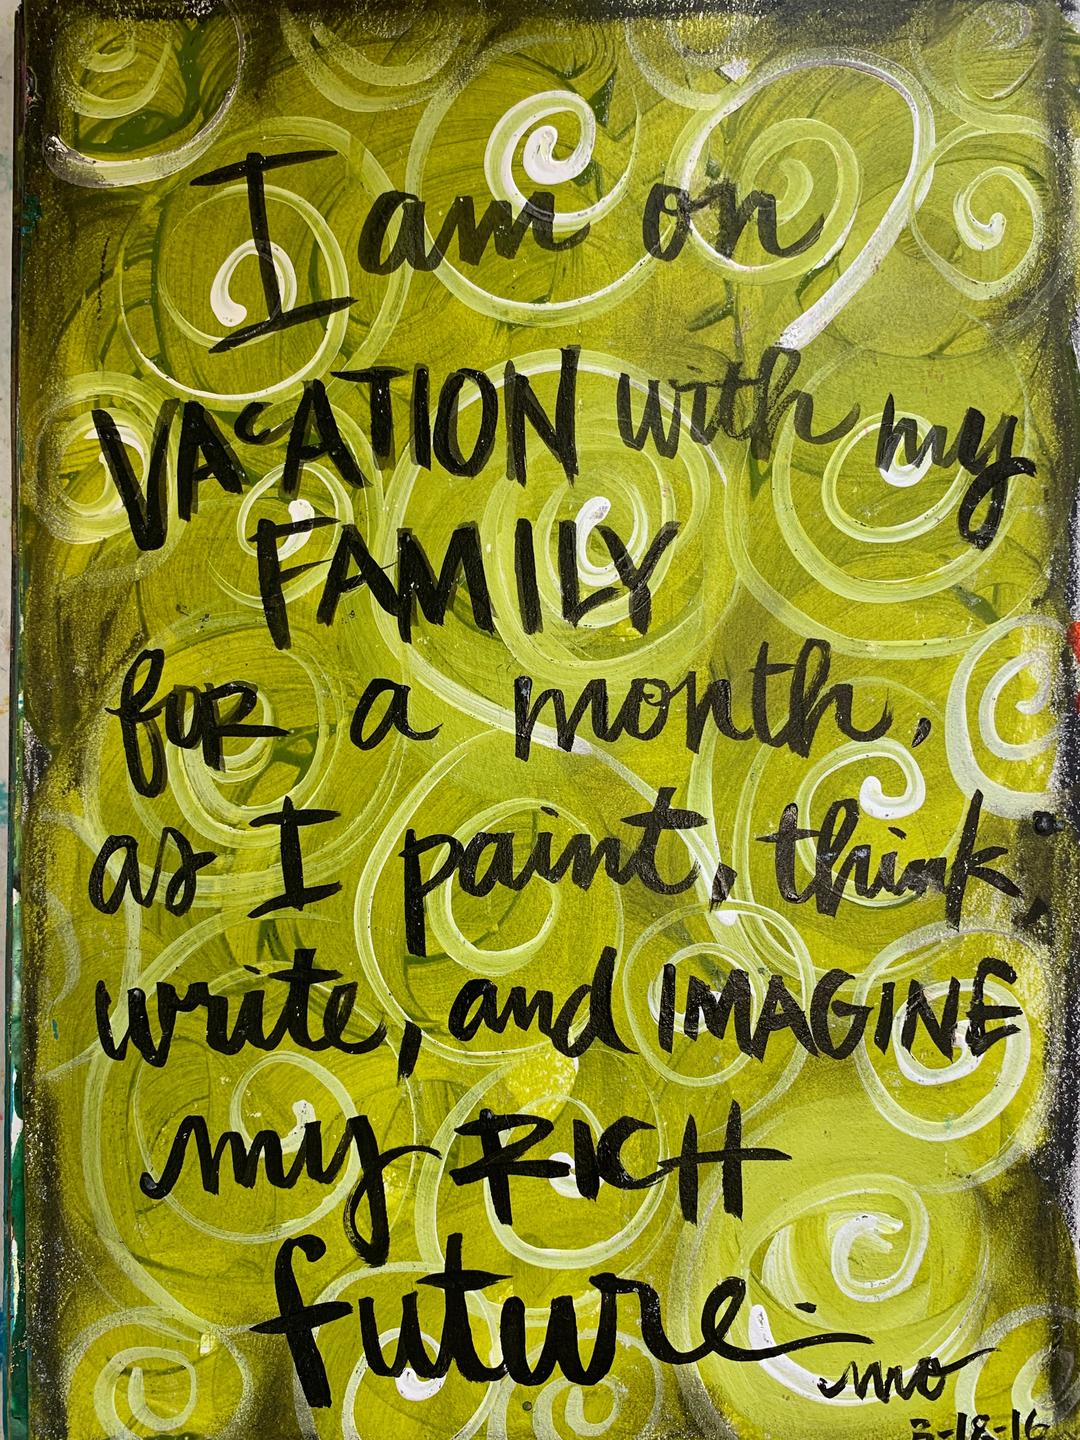 I am on
VACATION with my
FAMILY
for a month,
as I paint, think,
write, and IMAGINE
my RICH
future.
mo